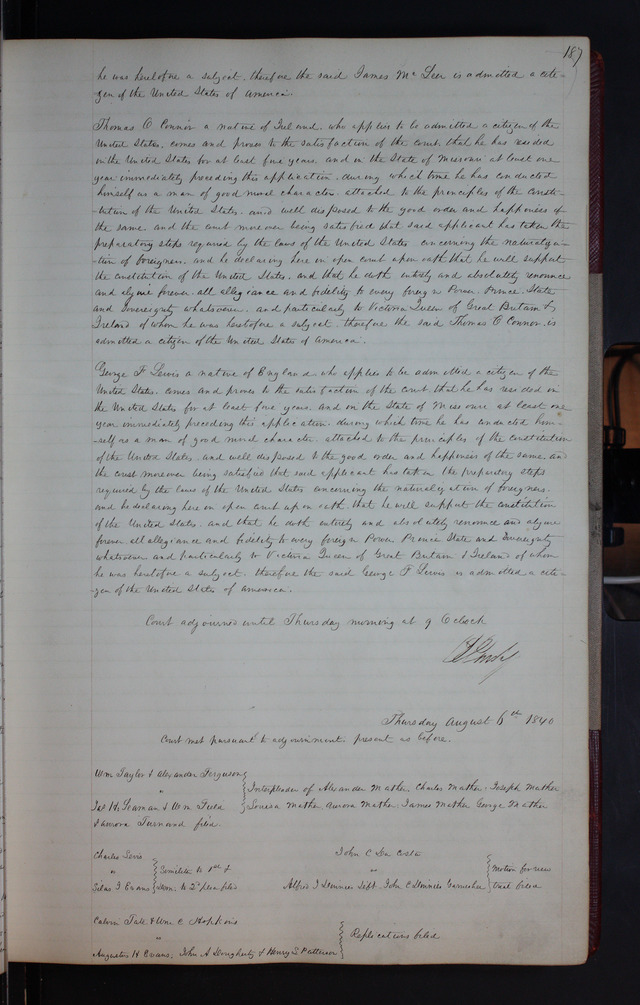 187
he was heretofore a subject. therefore the said James Mc Leer is admitted a citi-
zen of the United States of America.
Thomas O Connor a native of Ireland. who applies to be admitted a citizen of the
United States. comes and proves to the satisfaction of the court, that he has resided
in the United States for at least five years, and in the State of Missouri at least one
year immediately preceding this application. during which time he has conducted
himself as a man of good moral character. attached to the principles of the consti-
-tution of the United States. and well disposed to the good order and happiness of
the same. and the court moreover being satisfied that said applicant has taken the
preparatory steps required by the laws of the United States concerning the naturaliza-
-tion of foreigners. and he declaring here in open court upon oath that he will support
the constitution of the United States. and that he doth entirely and absolutely renounce
and abjure forever. all allegiance and fidelity to every foreign Power. Prince. State
and Sovereignty whatsoever. and particularly to Victoria Queen of Great Britain &
Ireland of whom he was heretofore a subject. therefore the said Thomas O Connor is
admitted a citizen of the United States of America.
George F Lewis a native of England who applies to be admitted a citizen of the
United States. comes and proves to the satisfaction of the court, that he has resided in
the United States for at least five years, and in the State of Missouri at least one
year immediately preceding this application. during which time he has conducted him-
-self as a man of good moral character. attached to the principles of the constitution
of the United States. and well disposed to the good order and happiness of the same. and
the court moreover being satisfied that said applicant has taken the preparatory steps
required by the laws of the United States concerning the naturalization of foreigners.
and he declaring here in open court upon oath. that he will support the constitution
of the United States. and that he doth entirely and absolutely renounce and abjure
forever all allegiance and fidelity to every foreign Power Prince State and Sovereignty
whatsoever and particularly to Victoria Queen of Great Britain & Ireland of whom
he was heretofore a subject. therefore the said George F Lewis is admitted a citi-
zen of the United States of America.
Court adjourned until Thursday morning at 9 Oclock
Thursday August 6th 1840
Court met pursuant to adjournment. present as before.
Wm Taylor & Alexander Ferguson
"
Jas H. Yeaman & Wm Field
& Aurora Turn and filed
Interpleader of Alexander Mather, Charles Mather. Joseph Mather
Louisa Mather Aurora Mather. James Mather George Mather
Charles
"
Silas J Evans
Similiter to 1st &
Dem. to 2d plea filed
John C Da Costa
"
Alfred J Dennies Deft. John C Dennies Garnishee
Motion for new
trial filed
Calvin Tate & Wm C Hopkins
"
Augustus H Evans. John A Dougherty & Henry S Patterson
Replications filed